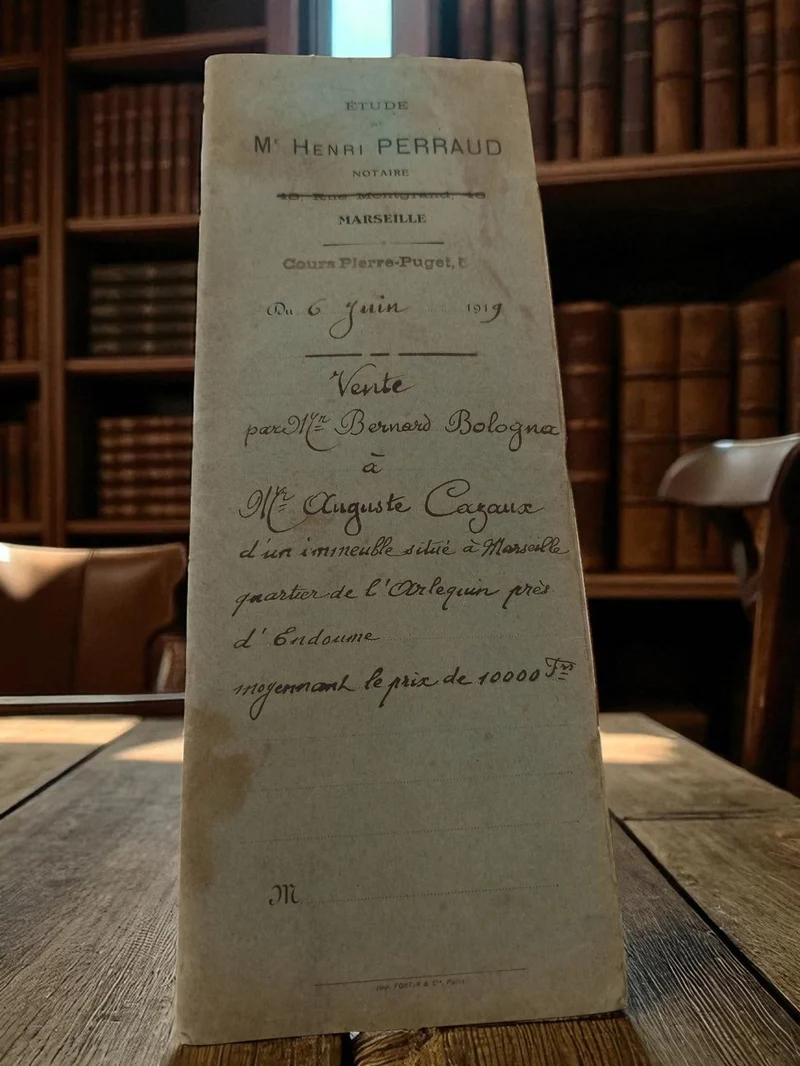 ÉTUDE
DE
Me HENRI PERRAUD
NOTAIRE
48, Rue Montgrand, 48
MARSEILLE
Cours Pierre-Puget, 5
Du 6 Juin 1919
Vente
par Mr Bernard Bologna
à
Mr Auguste Cazaux
d'un immeuble situé à Marseille
quartier de l'Arlequin près
d'Endoume
moyennant le prix de 10000 Frs
M
Imp. FORTIN & Cie, Paris